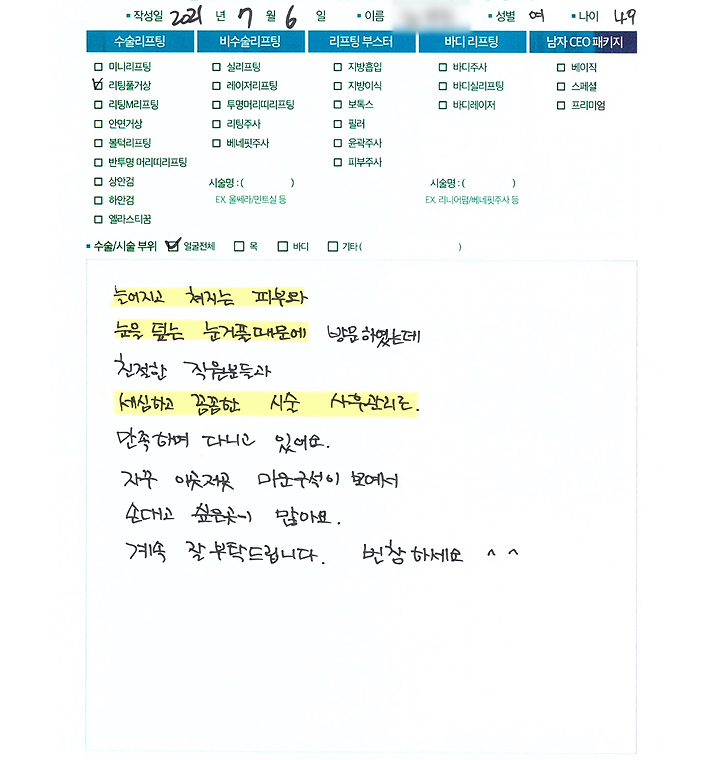 작성일 2021 년 7 월 6 일 이름 성별 여 나이 49
수술리프팅 비수술리프팅 리프팅 부스터 바디 리프팅 남자 CEO 패키지
미니리프팅 실리프팅 지방흡입 바디주사 베이직
리팅풀거상 레이저리프팅 지방이식 바디실리프팅 스페셜
리팅M리프팅 투명머리띠리프팅 보톡스 바디레이저 프리미엄
안면거상 리팅주사 필러
볼턱리프팅 베네핏주사 윤곽주사
반투명 머리띠리프팅 피부주사
상안검 시술명 : ( ) 시술명 : ( )
하안검 EX. 울쎄라/민트실 등 EX. 리니어펌/베네핏주사 등
엘라스티꿈
수술/시술 부위 얼굴전체 목 바디 기타 ( )
늘어지고 쳐지는 피부와
눈을 덮는 눈거풀때문에 방문하였는데
친절한 직원분들과
세심하고 꼼꼼한 시술 사후관리로.
만족하며 다니고 있어요.
자꾸 이곳저곳 미운구석이 보여서
손대고 싶은곳이 많아요.
계속 잘 부탁드립니다. 번창하세요 ^ ^